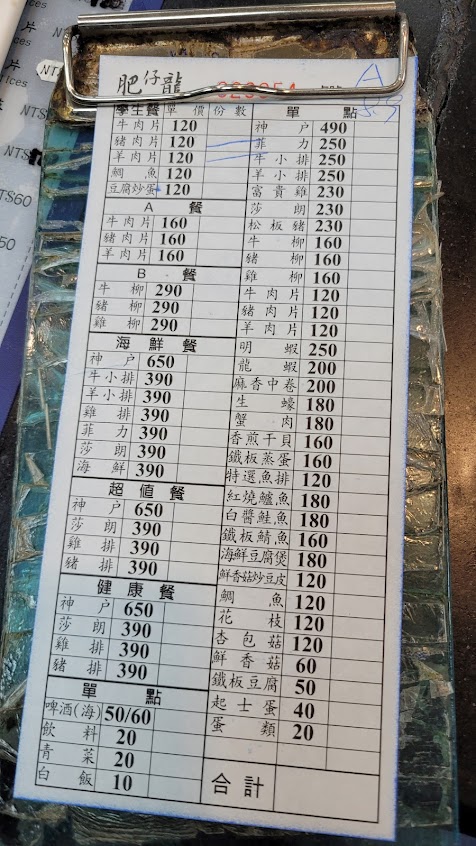 肥仔龍
學生餐 單價 份數
牛肉片 120
豬肉片 120
羊肉片 120
鯛魚 120
豆腐炒蛋 120
A 餐
牛肉片 160
豬肉片 160
羊肉片 160
B 餐
牛柳 290
豬柳 290
雞柳 290
海鮮餐
神戶 650
牛小排 390
羊小排 390
雞排 390
菲力 390
莎朗 390
海鮮 390
超值餐
神戶 650
莎朗 390
雞排 390
豬排 390
健康餐
神戶 650
莎朗 390
雞排 390
豬排 390
單點
啤酒(海) 50/60
飲料 20
青菜 20
白飯 10
單點
神戶 490
菲力 250
牛小排 250
羊小排 250
富貴雞 230
莎朗 230
松板豬 230
牛柳 160
豬柳 160
雞柳 160
牛肉片 120
豬肉片 120
羊肉片 120
明蝦 250
龍蝦 200
麻香中卷 200
生蠔 180
蟹肉 180
香煎干貝 160
鐵板蒸蛋 160
特選魚排 120
紅燒鱸魚 180
白醬鮭魚 180
鐵板鯖魚 160
海鮮豆腐煲 180
鮮香菇炒豆皮 120
鯛魚 120
花枝 120
杏包菇 120
鮮香菇 60
鐵板豆腐 50
起士蛋 40
蛋類 20
合計